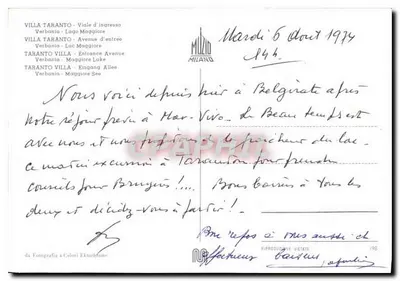 VILLA TARANTO - Viale d'ingresso
Verbania - Lago Maggiore
VILLA TARANTO - Avenue d'entrée
Verbania - Lac Majeur
TARANTO VILLA - Entrance Avenue
Verbania - Maggiore Lake
TARANTO VILLA - Eingang Allee
Verbania - Maggiore See
MILANO
Mardi 6 Aout 1974
14h
Nous voici depuis hier à Belgirate après
notre séjour prévu à Mar-Vivo. Le Beau temps est
avec nous et nous de la fraîcheur du lac.
ce matin excursion à Taranto pour prendre
conseils pour Bruyères!... Bons Baisers à tous les
deux et décidez-vous à partir!
Bon repos à vous aussi et
affectueux baisers
da Fotografia a Colori Ektachrome
RIPRODUZIONE VIETATA